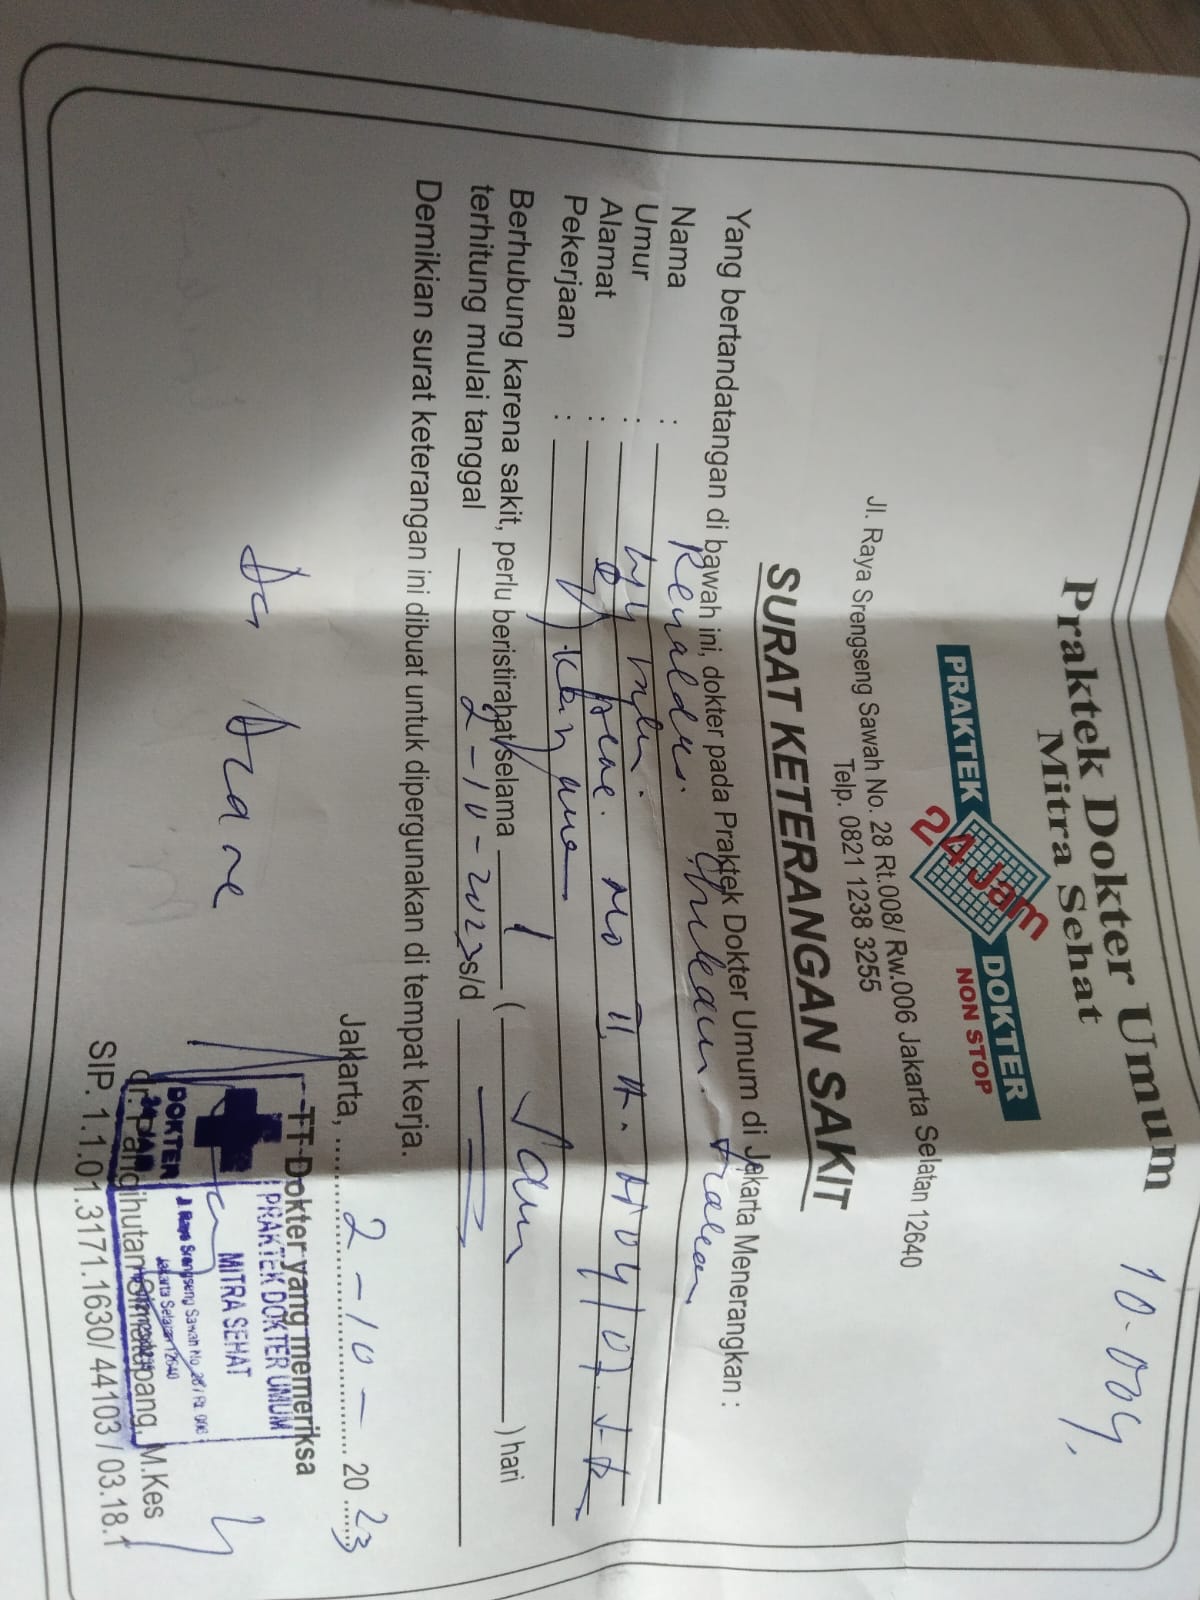 Praktek Dokter Umum
10.004,
Mitra Sehat
PRAKTEK 24 Jam DOKTER
NON STOP
Jl. Raya Srengseng Sawah No. 28 Rt.008/ Rw.006 Jakarta Selatan 12640
Telp. 0821 1238 3255
SURAT KETERANGAN SAKIT
Yang bertandatangan di bawah ini, dokter pada Praktek Dokter Umum di Jakarta Menerangkan :
Nama :
Umur :
Alamat : II
Pekerjaan :
Berhubung karena sakit, perlu beristirahat selama 1 ( ) hari
terhitung mulai tanggal 2-10-2023 s/d
Demikian surat keterangan ini dibuat untuk dipergunakan di tempat kerja.
Jakarta, 2-10- 20 23
TT Dokter yang memeriksa
PRAKTEK DOKTER UMUM
MITRA SEHAT
Jl. Raya Srengseng Sawah No. 28 / Rt. 006
Jakarta Selatan 12640
DOKTER
24 JAM
dr. Pangihutan Simatupang, M.Kes
SIP. 1.1.01.3171.1630/ 44103 / 03.18.1